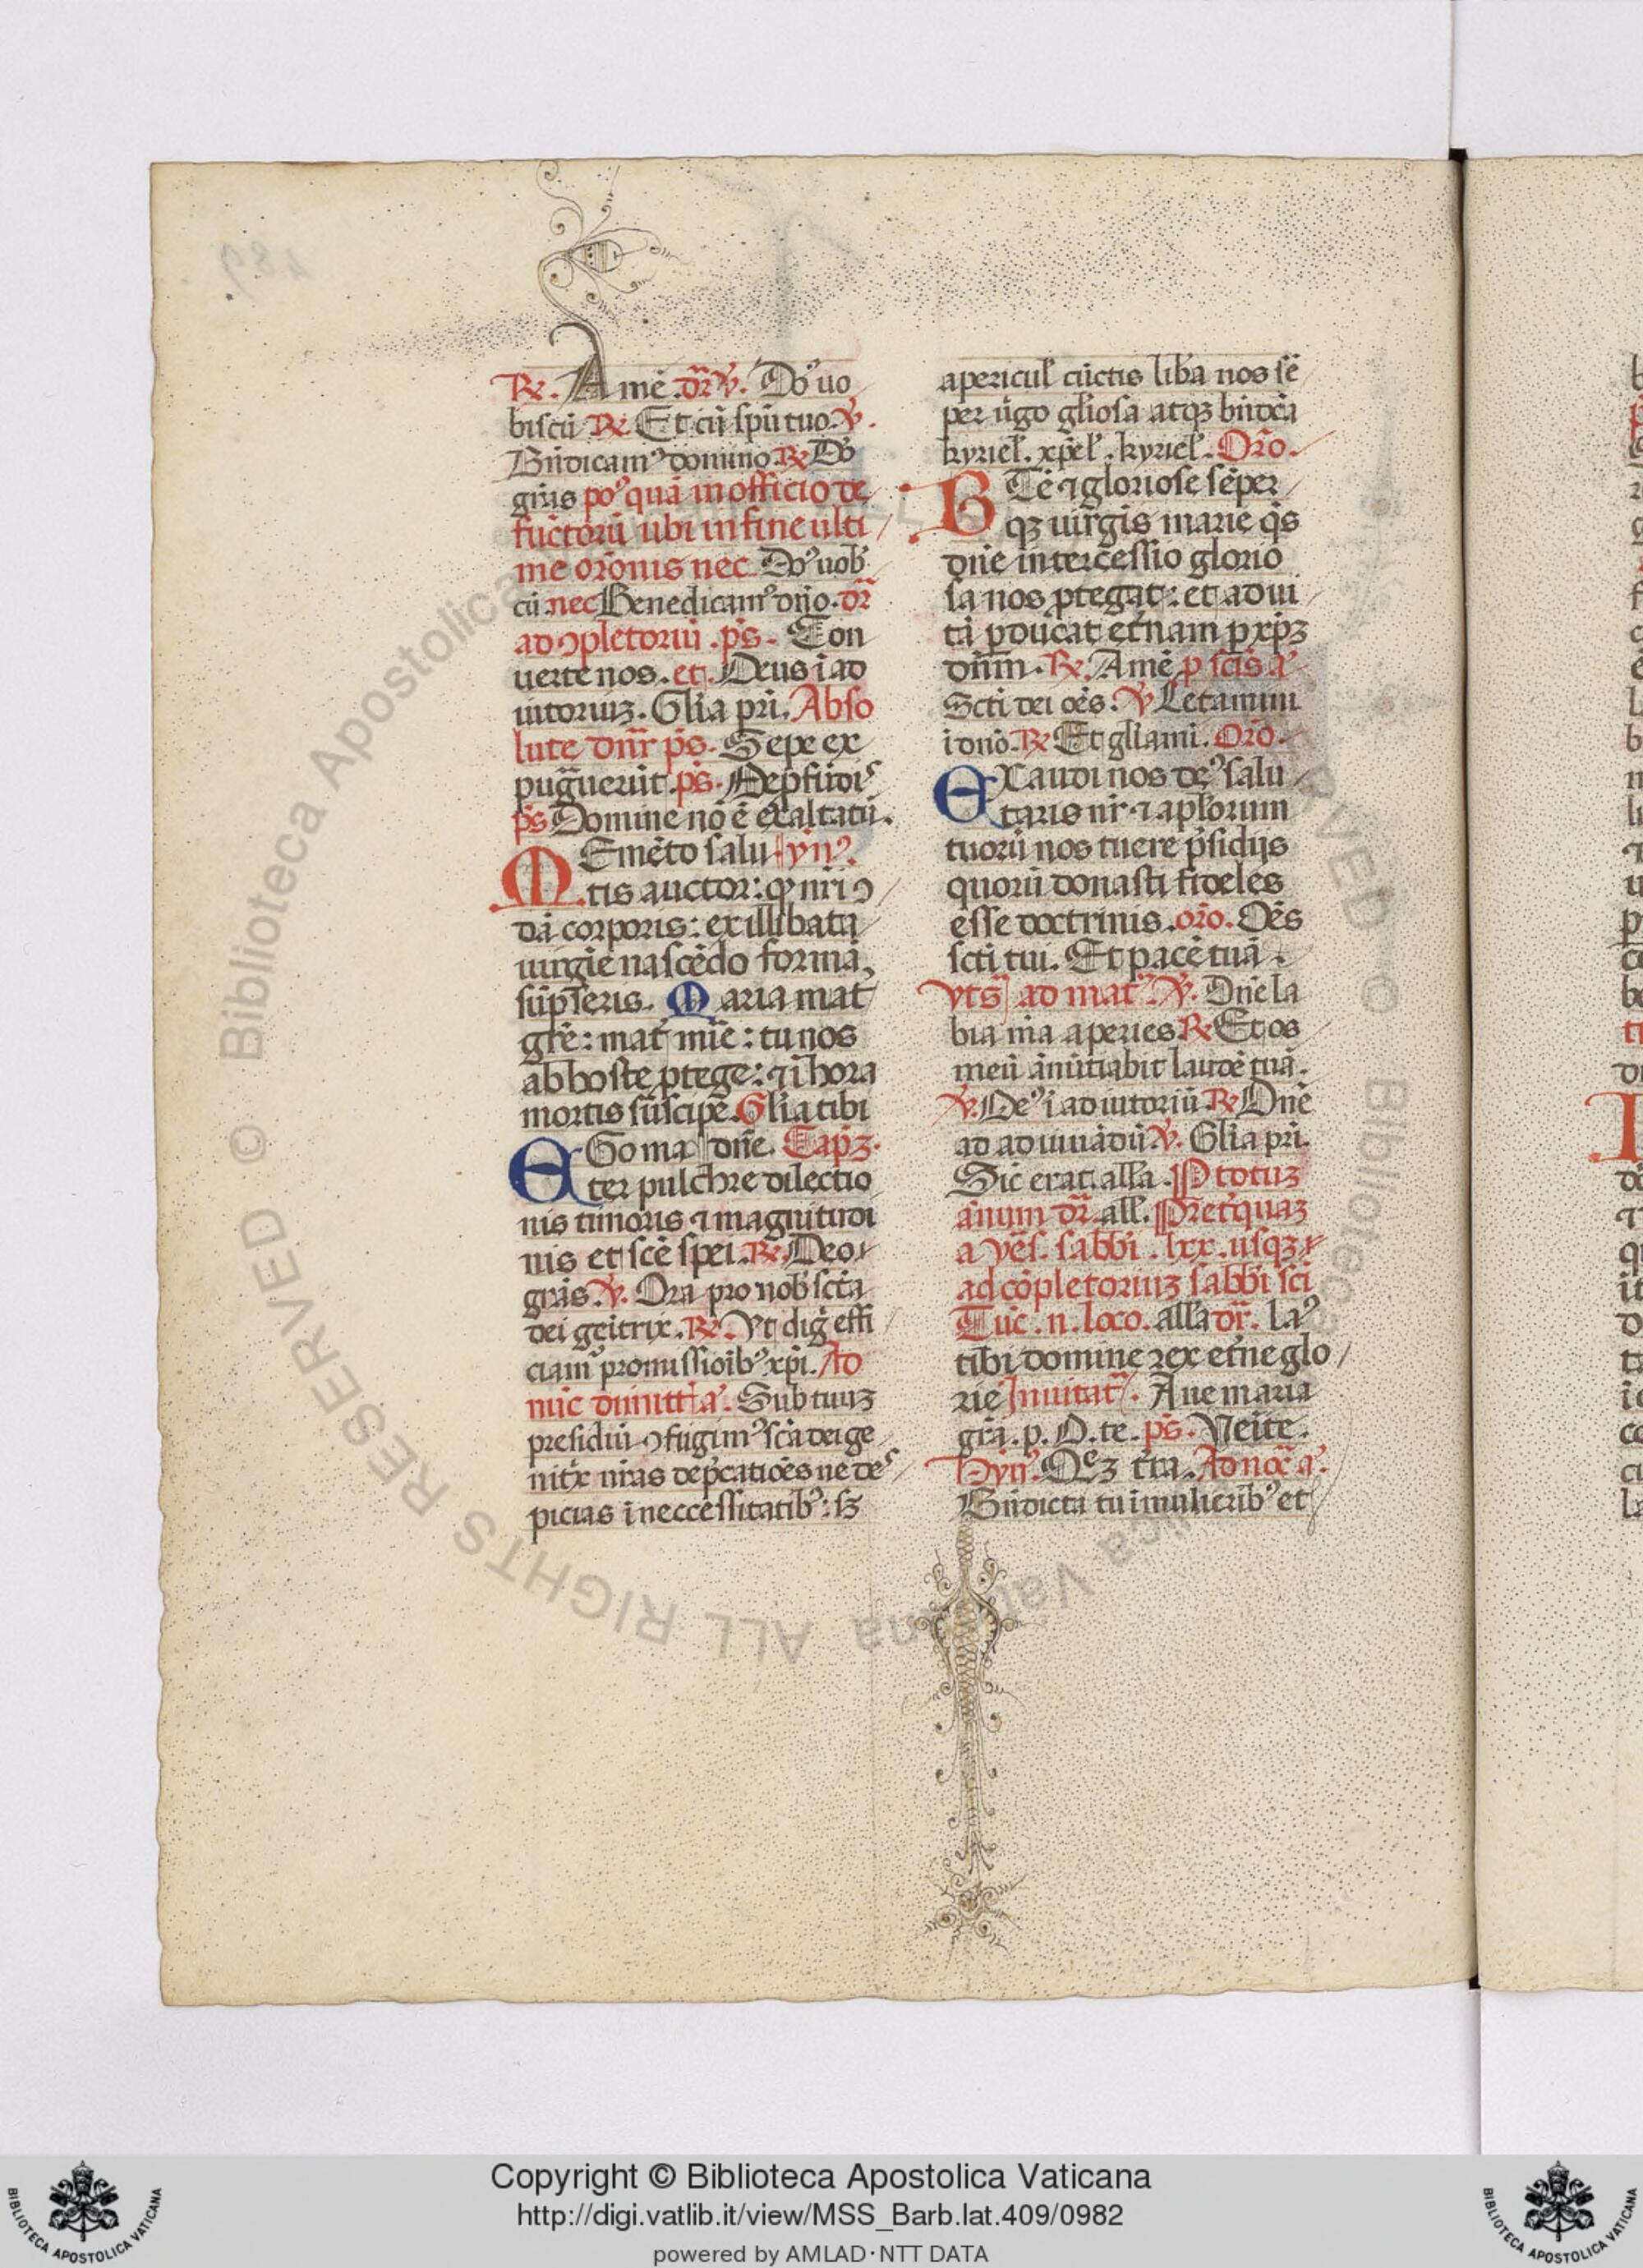 ℟. Amē. dr̄ ℣. Dn̄s uo
biscū ℟ Et cū spū tuo. ℣.
Bn̄dicamꝰ domino. ℟ Do
gr̄as poꝰquā in officio de
fūctorū ubi in fine ulti
me orōnis nec Dn̄s uob
cū. nec Benedicamꝰ dn̄o. dr̄
ad ꝯpletoriū. ps̄. Con
uerte nos. et. Deus ī ad
iutoriuꝫ. Gl̄ia pr̄i. Abso
lute dn̄r ps̄. Sepe ex
pugn̄uerūt. ps̄. De pfūdis
ps̄ Domine nō ē exaltatū.
MEmēto salu hyn̄ꝰ.
tis auctor: ꝙ nr̄i ꝯ
dā corporis: ex illibata
uirgīe nascēdo formā,
sūpseris. Maria mat̄
gr̄e: mat̄ mīe: tu nos
ab hoste ptege: ⁊ ī hora
mortis sūscipe. Gl̄ia tibi
EGo ma dn̄e. Cap̄ꝫ.
ter pulchre dilectio
nis timoris ⁊ magnitudi
nis et scē spei. ℟. Deo
gr̄as. ℣. Ora pro nob̄ scā
dei geītrix. ℟. Vt diḡ effi
ciamꝰ promissioībꝰ xp̄i. Ad
nūc dimitt̄ a. Sub tuuꝫ
presidiū ꝯfugimꝰ scā dei ge
nitx nr̄as dep̄catiōes ne des
picias ī neccessitatibꝰ: sꝫ
a pericul̄ cūctis lib̄a nos sē
per ūgo gl̄iosa atqꝫ bn̄dcā
kyriel̄. xp̄el̄. kyriel̄. Or̄o.
BTē ⁊ gloriose sēper
qꝫ uirgīs marie qs̄
dn̄e intercessio glorio
sa nos ptegat: et ad ui
tā pducat et̄nam p xp̄ꝫ
dn̄m. ℟. Amē p scīs a
Scti dei oēs. ℣ Letamini
ī dn̄o. ℟ Et gl̄iami. Or̄o.
EXaudi nos deꝰ salu
taris nr̄ ⁊ apl̄orum
tuorū nos tuere p̄sidijs
quorū donasti fideles
esse doctrinis. or̄o. Oēs
scti tui. Et pacē tuā.
vts̄ ad mat̄. ℣. Dn̄e la
bia m̄a aperies ℟ Et os
meū ānūtiabit laudē tuā.
℣. Deꝰ ī adiutoriū ℟ Dn̄e
ad adiuuādū ℣. Gl̄ia pr̄i.
Sic erat. all̄a. P totuꝫ
ānum dr̄. all̄. Pret̄quaꝫ
a vēs. sabb̄i. lxx. usqꝫ
ad cōpletoriuꝫ sabb̄i scī
Tūc. n. loco. all̄a dr̄. laꝰ
tibi domine rex et̄ne glo
rie Inuitat̄. Aue maria
gr̄a. p. D. te. ps̄. Veīte.
Hyn̄. Qeꝫ t̄ra. Ad noc̄ a.
Bn̄dicta tu ī mulieribꝰ et
Copyright © Biblioteca Apostolica Vaticana
http://digi.vatlib.it/view/MSS_Barb.lat.409/0982
powered by AMLAD·NTT DATA